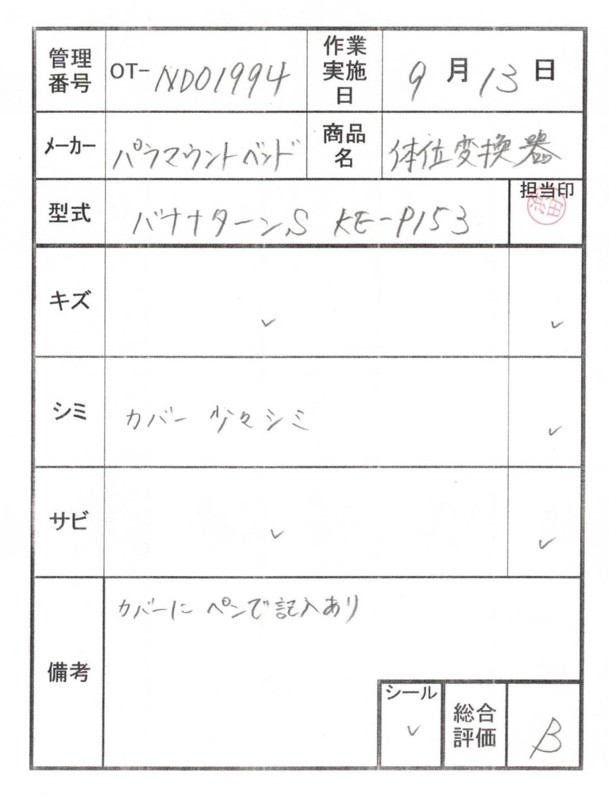 管理番号 OT-ND01994 作業実施日 9月13日
メーカー パラマウントベッド 商品名 体位変換器
担当印
型式 バナナターンS KE-P153
キズ ✓ ✓
シミ カバー 少々シミ ✓
サビ ✓ ✓
備考 カバーに ペンで記入あり
シール ✓ 総合評価 B